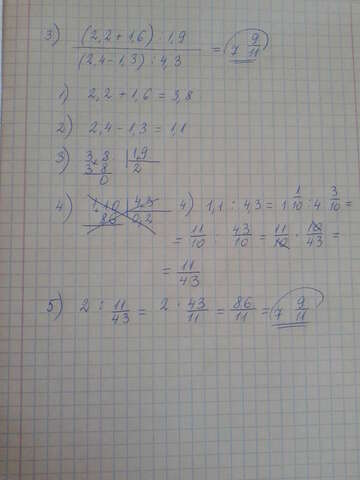 3) (2,2+1,6) : 1,9 / (2,4-1,3) : 4,3 = 7 9/11
1) 2,2 + 1,6 = 3,8
2) 2,4 - 1,3 = 1,1
3) 3,8 | 1,9
3 8 | 2
0
4) 1,10 | 4,3 4) 1,1 : 4,3 = 1 1/10 : 4 3/10 =
86 | 0,2 = 11/10 : 43/10 = 11/10 · 10/43 =
= 11/43
5) 2 : 11/43 = 2 · 43/11 = 86/11 = 7 9/11